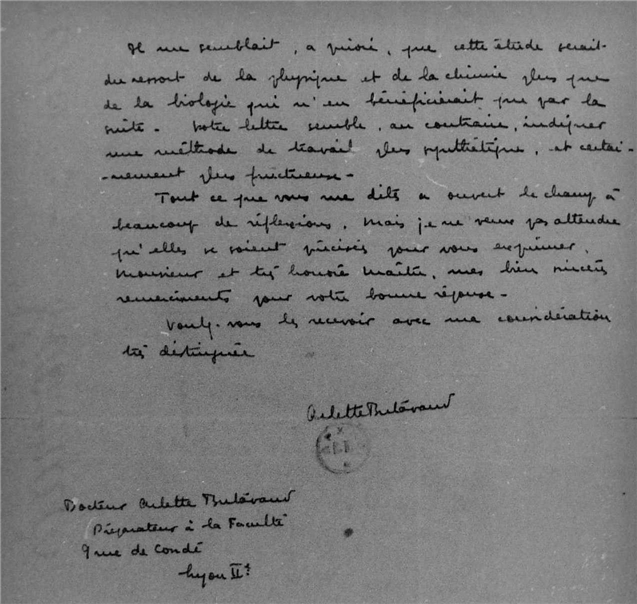 Il me semblait, a priori, que cette étude serait
du ressort de la physique et de la chimie plus que
de la biologie qui n'en bénéficierait que par la
suite - Votre lettre semble, au contraire, indiquer
une méthode de travail plus synthétique, et certai-
-nement plus fructueuse -
Tout ce que vous me dites a ouvert le champ à
beaucoup de réflexions, mais je ne veux pas attendre
qu'elles se soient précisées pour vous exprimer,
Monsieur et très honoré Maître, mes bien sincères
remerciements pour votre bonne réponse -
Voulez-vous les recevoir avec ma considération
très distinguée
Arlette Butavand
Docteur Arlette Butavand
Préparateur à la Faculté
9 rue de Condé
Lyon IIe